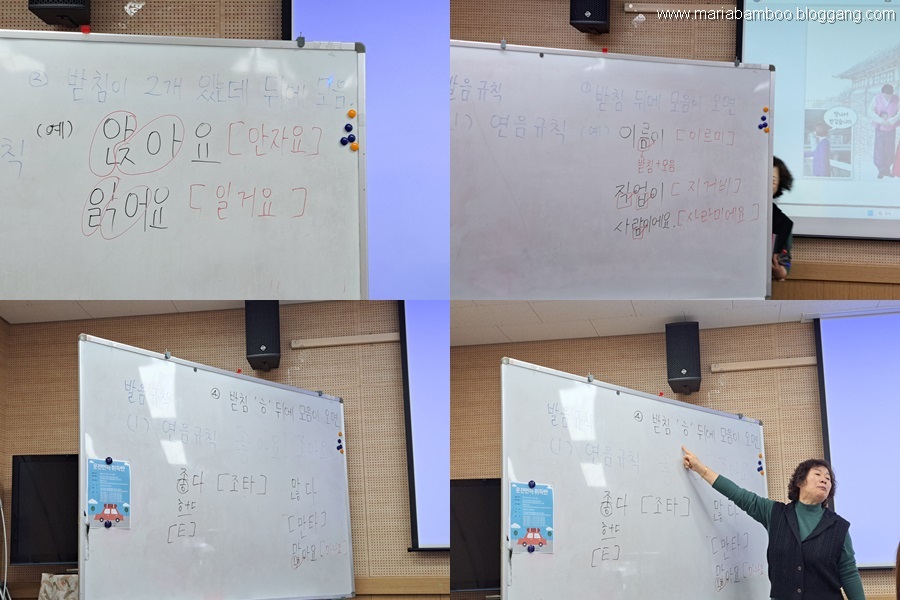 ③ 받침이 2개 있는데 뒤에 모음.
칙
(예) 앉아요 [안자요]
읽어요 [일거요]
www.mariabamboo.bloggang.com
발음규칙
①받침 뒤에 모음이 오면
1) 연음규칙 예) 이름이 [이르미]
받침+모음
직업이 [지거비]
사람이에요. [사라미에요]
발음
④ 받침 'ㅎ' 뒤에 모음이 오면
(1) 연음규칙
좋다 [조타] 많다.
ㅎ+ㄷ
[ㅌ] [만타]
많아요
운전면허 취득반
발음
④ 받침 'ㅎ' 뒤에 모음이 오면
(1) 연음규칙
좋다 [조타] 많다
ㅎ+ㄷ
[ㅌ] [만타]
많아요